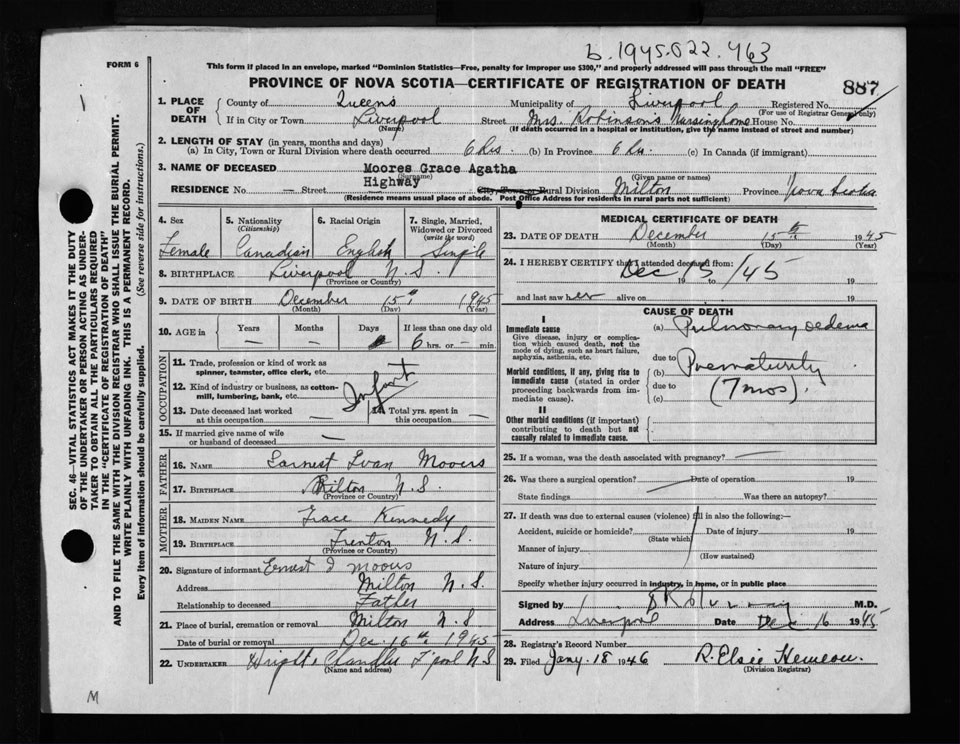 b. 1945.022.463
FORM 6
This form if placed in an envelope, marked "Dominion Statistics—Free, penalty for improper use $300," and properly addressed will pass through the mail "FREE"
PROVINCE OF NOVA SCOTIA—CERTIFICATE OF REGISTRATION OF DEATH
887
1. PLACE OF DEATH
County of Queens Municipality of Liverpool Registered No.
(For use of Registrar General only)
If in City or Town Liverpool Street Mrs. Robinson's Nursing home House No.
(Name) (If death occurred in a hospital or institution, give the name instead of street and number)
2. LENGTH OF STAY (in years, months and days)
(a) In City, Town or Rural Division where death occurred 6 hrs (b) In Province 6 hrs. (c) In Canada (if immigrant)
3. NAME OF DECEASED Moores Grace Agatha
(Surname) (Given name or names)
RESIDENCE No — Street Highway City, Town or Rural Division Milton Province Nova Scotia
(Residence means usual place of abode. Post Office Address for residents in rural parts not sufficient)
4. Sex
Female
5. Nationality
(Citizenship)
Canadian
6. Racial Origin
English
7. Single, Married, Widowed or Divorced
(write the word)
Single
8. BIRTHPLACE Liverpool N.S.
(Province or Country)
9. DATE OF BIRTH December 15th 1945
(Month) (Day) (Year)
10. AGE in
Years Months Days If less than one day old
— — 6 hrs. or — min.
OCCUPATION
11. Trade, profession or kind of work as spinner, teamster, office clerk, etc.
12. Kind of industry or business, as cotton-mill, lumbering, bank, etc.
Infant
13. Date deceased last worked at this occupation —
14. Total yrs. spent in this occupation —
15. If married give name of wife or husband of deceased —
FATHER
16. NAME Earnest Ivan Moores
17. BIRTHPLACE Milton N.S.
(Province or Country)
MOTHER
18. MAIDEN NAME Grace Kennedy
19. BIRTHPLACE Trenton N.S.
(Province or Country)
20. Signature of informant Ernest I Moores
Address Milton N.S.
Relationship to deceased Father
21. Place of burial, cremation or removal Milton N.S
Date of burial or removal Dec. 16th 1945
22. UNDERTAKER Wright & Chandler L'pool N.S
(Name and address)
MEDICAL CERTIFICATE OF DEATH
23. DATE OF DEATH December 15th 1945
(Month) (Day) (Year)
24. I HEREBY CERTIFY that I attended deceased from:
Dec 15/45
19 to 19
and last saw her alive on 19
CAUSE OF DEATH
I
Immediate cause
Give disease, injury or complication which caused death, not the mode of dying, such as heart failure, asphyxia, asthenia, etc.
(a) Pulmonary oedema
due to
Morbid conditions, if any, giving rise to immediate cause (stated in order proceeding backwards from immediate cause).
(b) Prematurity
due to
(c) (7 mos).
II
Other morbid conditions (if important) contributing to death but not causally related to immediate cause.
25. If a woman, was the death associated with pregnancy? —
26. Was there a surgical operation? Date of operation 19
State findings Was there an autopsy?
27. If death was due to external causes (violence) fill in also the following:—
Accident, suicide or homicide? Date of injury 19
(State which)
Manner of injury
(How sustained)
Nature of injury
Specify whether injury occurred in industry, in home, or in public place
Signed by M.D.
Address Liverpool Date Dec 16 1945
28. Registrar's Record Number
29. Filed Jany. 18 1946 R. Elsie
(Division Registrar)
SEC. 46—VITAL STATISTICS ACT MAKES IT THE DUTY
OF THE UNDERTAKER OR PERSON ACTING AS UNDER-
TAKER TO OBTAIN ALL THE PARTICULARS REQUIRED
IN THE "CERTIFICATE OF REGISTRATION OF DEATH"
AND TO FILE THE SAME WITH THE DIVISION REGISTRAR WHO SHALL ISSUE THE BURIAL PERMIT.
WRITE PLAINLY WITH UNFADING INK. THIS IS A PERMANENT RECORD.
Every item of information should be carefully supplied. (See reverse side for instructions.)
M